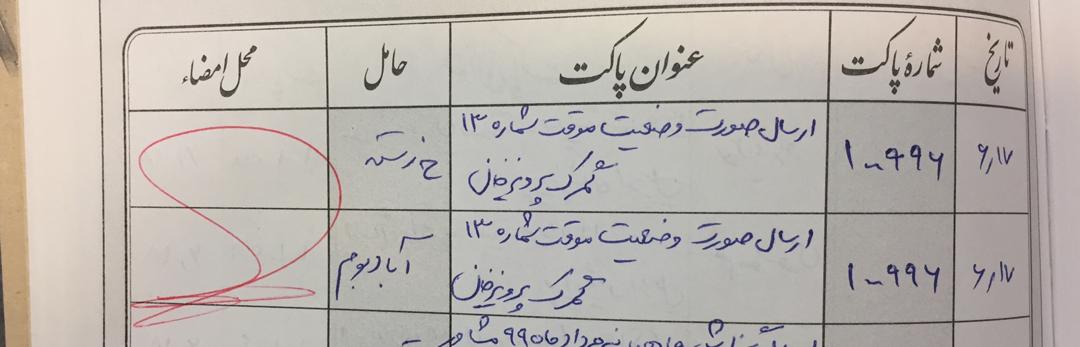 تاریخ شمارهٔ پاکت عنوان پاکت حامل محل امضاء
۶٫۱۷ ۱۰۹۹۶ ارسال صورت وضعیت موقت شماره ۱۳
گمرک پرویزخان
۶٫۱۷ ۱۰۹۹۶ ارسال صورت وضعیت موقت شماره ۱۳ آباد بوم
گمرک پرویزخان
مرداد ماه ۹۹